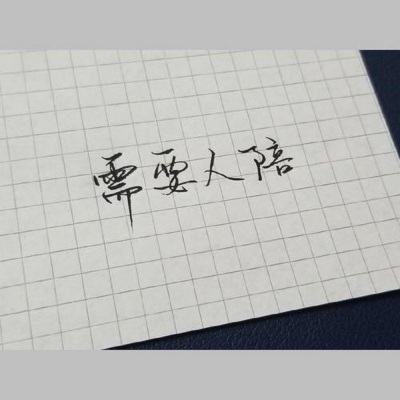 需要人陪